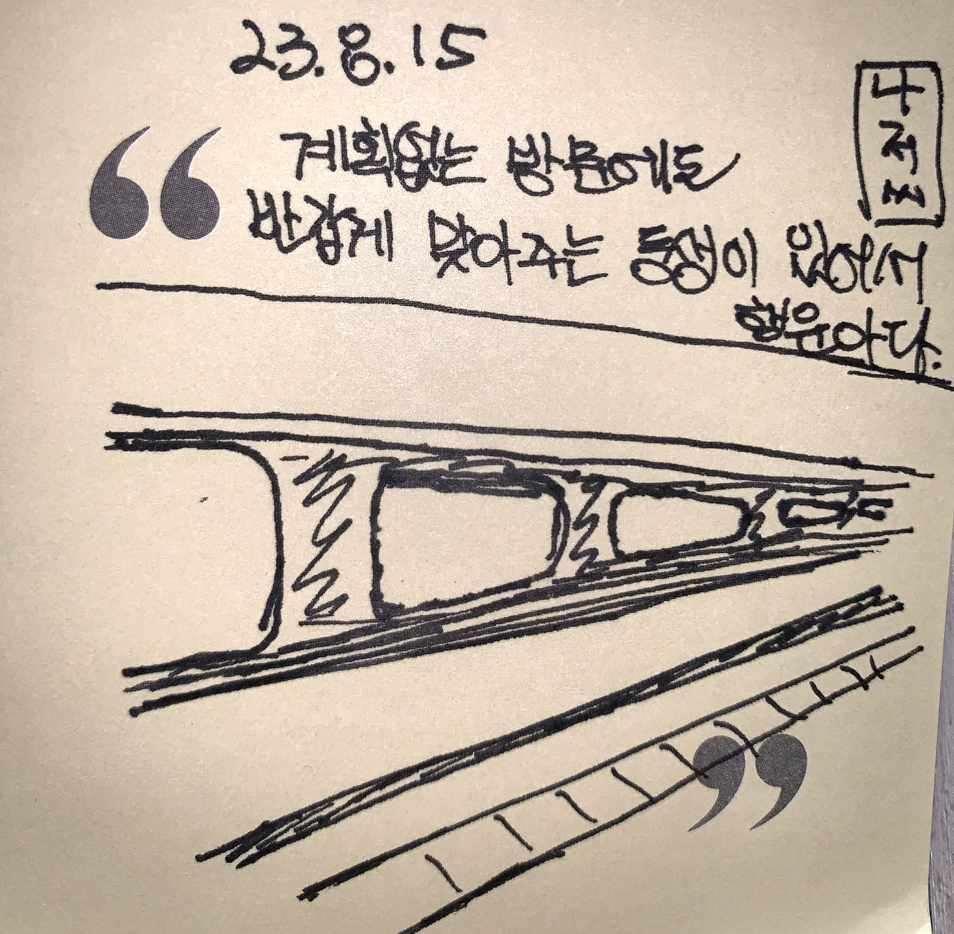 23.8.15
계획없는 방문에도
반갑게 맞아주는 동생이 있어서
행운아다.